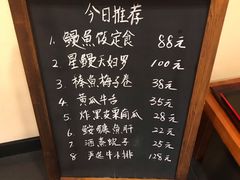 今日推荐
1. 鳗魚饭定食 88元
2. 星鳗天妇罗 100元
3. 棒魚梅子卷 38元
4. 黄瓜牛舌 35元
5. 炸黑皮栗南瓜 28元
6 鮟鱇魚肝 22元
7 酒蒸蚬子 25元
8 牛排 128元